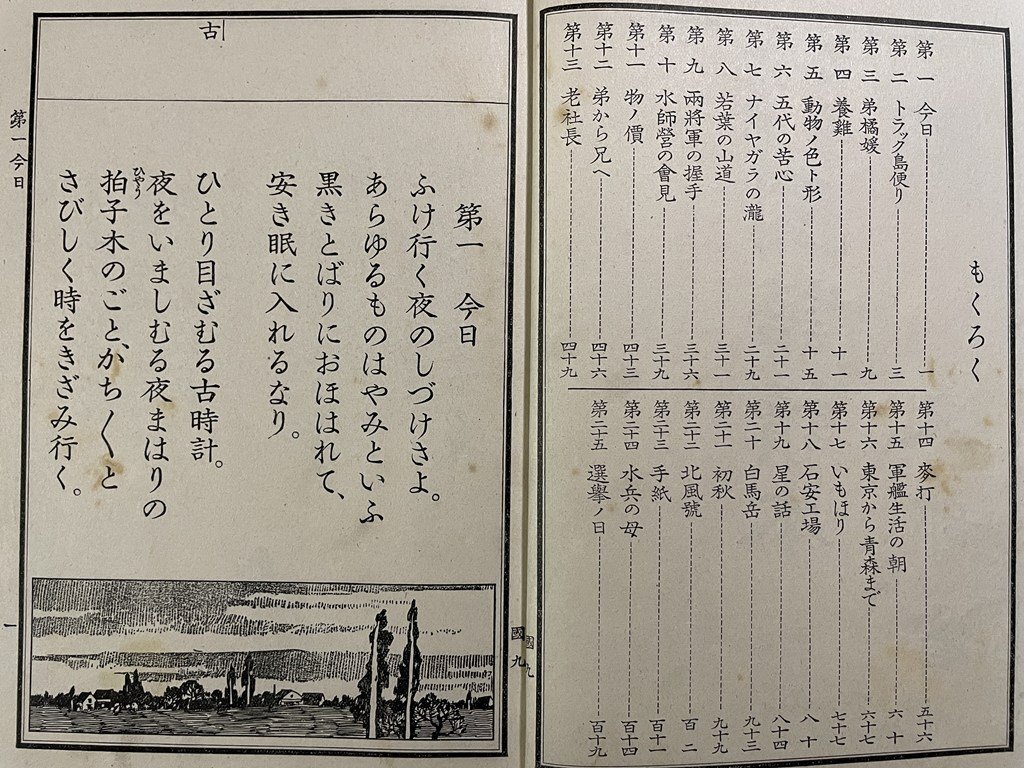 もくろく
第一 今日 一
第二 トラック島便り 三
第三 弟橘媛 九
第四 養雞 十一
第五 動物ノ色ト形 十五
第六 五代の苦心 二十一
第七 ナイヤガラの瀧 二十九
第八 若葉の山道 三十一
第九 兩將軍の握手 三十六
第十 水師營の會見 三十九
第十一 物ノ價 四十三
第十二 弟から兄へ 四十六
第十三 老社長 四十九
第十四 麥打 五十六
第十五 軍艦生活の朝 六十
第十六 東京から青森まで 六十七
第十七 いもほり 七十七
第十八 石安工場 八十
第十九 星の話 八十四
第二十 白馬岳 九十三
第二十一 初秋 九十九
第二十二 北風號 百二
第二十三 手紙 百十一
第二十四 水兵の母 百十四
第二十五 選擧ノ日 百十九
國九
國九
古
第一 今日
ふけ行く夜のしづけさよ。
あらゆるものはやみといふ
黒きとばりにおほはれて、
安き眠に入れるなり。
ひとり目ざむる古時計。
夜をいましむる夜まはりの
拍子木のごと、かち〱と
ひやう
さびしく時をきざみ行く。
第一 今日
一